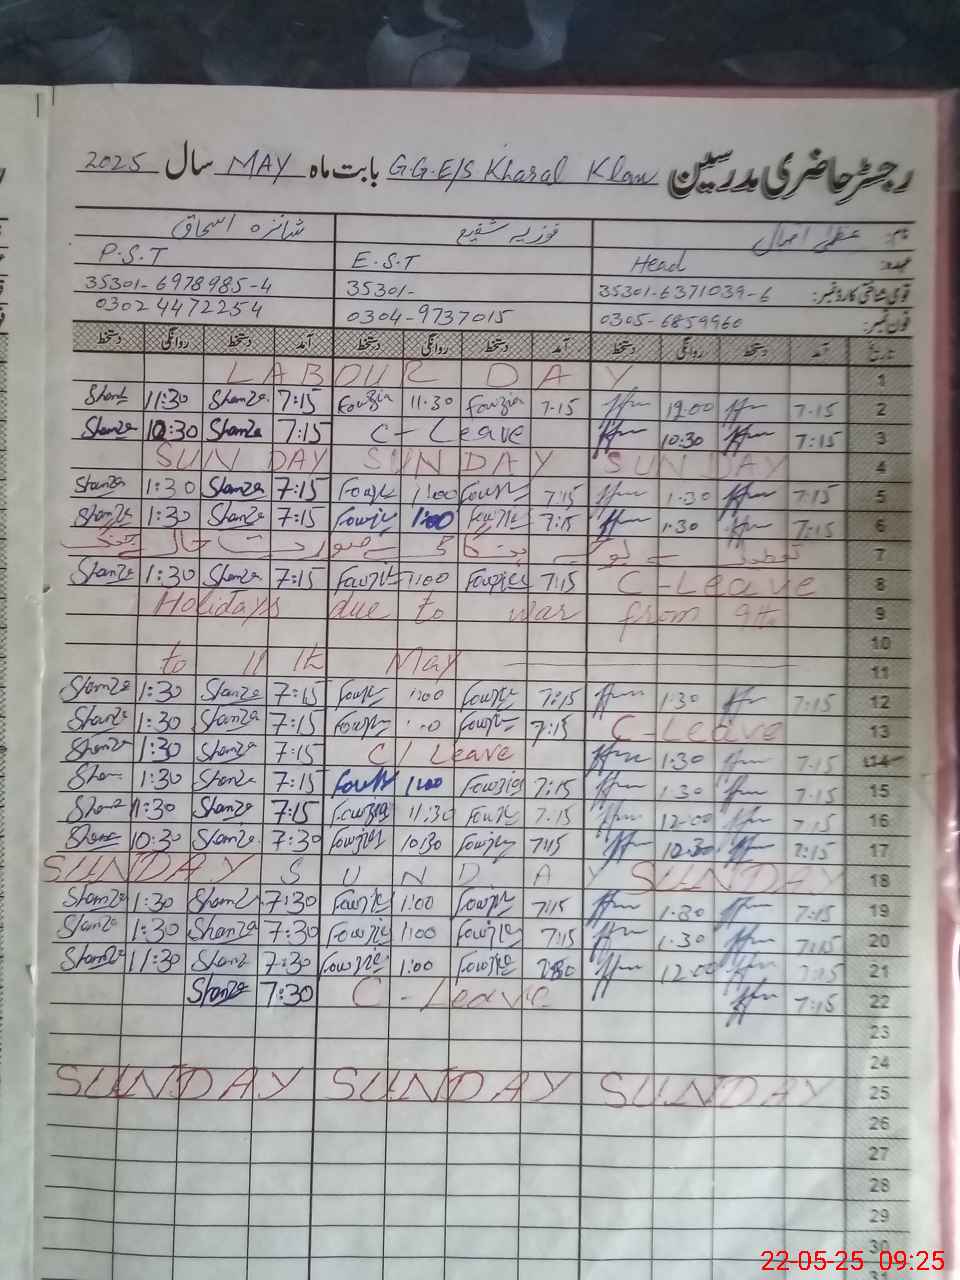 رجسٹر حاضری مدرسین G.G.E/S Kharal Klan بابت ماہ MAY سال 2025
نام: عظمیٰ فوزیہ شفیع شانزہ اسحاق
عہدہ: Head E.S.T P.S.T
قومی شناختی کارڈ نمبر: 35301-6371039-6 35301- 35301-6978985-4
فون نمبر: 0305-6859960 0304-9737015 0302 4472254
تاریخ آمد دستخط روانگی دستخط آمد دستخط روانگی دستخط آمد دستخط روانگی دستخط
LABOUR DAY 1
Shanza 11:30 Shanza 7:15 Fouzia 11:30 Fouzia 7:15 12:00 7:15 2
Shanza 10:30 Shanza 7:15 C-Leave 10:30 7:15 3
SUNDAY SUNDAY SUNDAY 4
Shanza 1:30 Shanza 7:15 Fouzia 1:00 Fouzia 7:15 1:30 7:15 5
Shanza 1:30 Shanza 7:15 Fouzia 1:00 Fouzia 7:15 1:30 7:15 6
7
Shanza 1:30 Shanza 7:15 Fouzia 1:00 Fouzia 7:15 C-Leave 8
Holidays due to war from 9th 9
10
to 11th May 11
Shanza 1:30 Shanza 7:15 Fouzia 1:00 Fouzia 7:15 1:30 7:15 12
Shanza 1:30 Shanza 7:15 Fouzia 1:00 Fouzia 7:15 C-Leave 13
Shanza 1:30 Shanza 7:15 C/Leave 1:30 7:15 14
Shanza 1:30 Shanza 7:15 Fouzia 1:00 Fouzia 7:15 1:30 7:15 15
Shanza 11:30 Shanza 7:15 Fouzia 11:30 Fouzia 7:15 12:00 7:15 16
Shanza 10:30 Shanza 7:30 Fouzia 10:30 Fouzia 7:15 10:30 7:15 17
SUNDAY SUNDAY SUNDAY 18
Shanza 1:30 Shanza 7:30 Fouzia 1:00 Fouzia 7:15 1:30 7:15 19
Shanza 1:30 Shanza 7:30 Fouzia 1:00 Fouzia 7:15 1:30 7:15 20
Shanza 11:30 Shanza 7:30 Fouzia 1:00 Fouzia 12:00 7:15 21
Shanza 7:30 C-Leave 7:15 22
23
24
SUNDAY SUNDAY SUNDAY 25
26
27
28
29
30
31
22-05-25 09:25